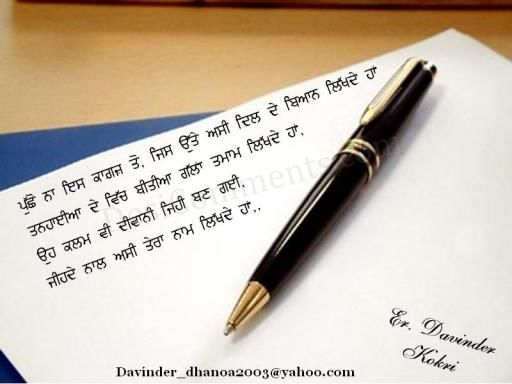 ਪੁੱਛੋ ਨਾ ਇਸ ਕਾਗਜ ਤੋਂ, ਜਿਸ ਉੱਤੇ ਅਸੀ ਦਿਲ ਦੇ ਬਿਆਨ ਲਿੱਖਦੇ ਹਾਂ
ਤਨਹਾਈਆ ਦੇ ਵਿੱਚ ਬੀਤੀਆ ਗੱਲਾਂ ਤਮਾਮ ਲਿੱਖਦੇ ਹਾਂ,
ਉਹ ਕਲਮ ਵੀ ਦੀਵਾਨੀ ਜਿਹੀ ਬਣ ਗਈ,
ਜੀਹਦੇ ਨਾਲ ਅਸੀ ਤੇਰਾ ਨਾਮ ਲਿੱਖਦੇ ਹਾਂ,,
Er. Davinder
Kokri
Davinder_dhanoa2003@yahoo.com